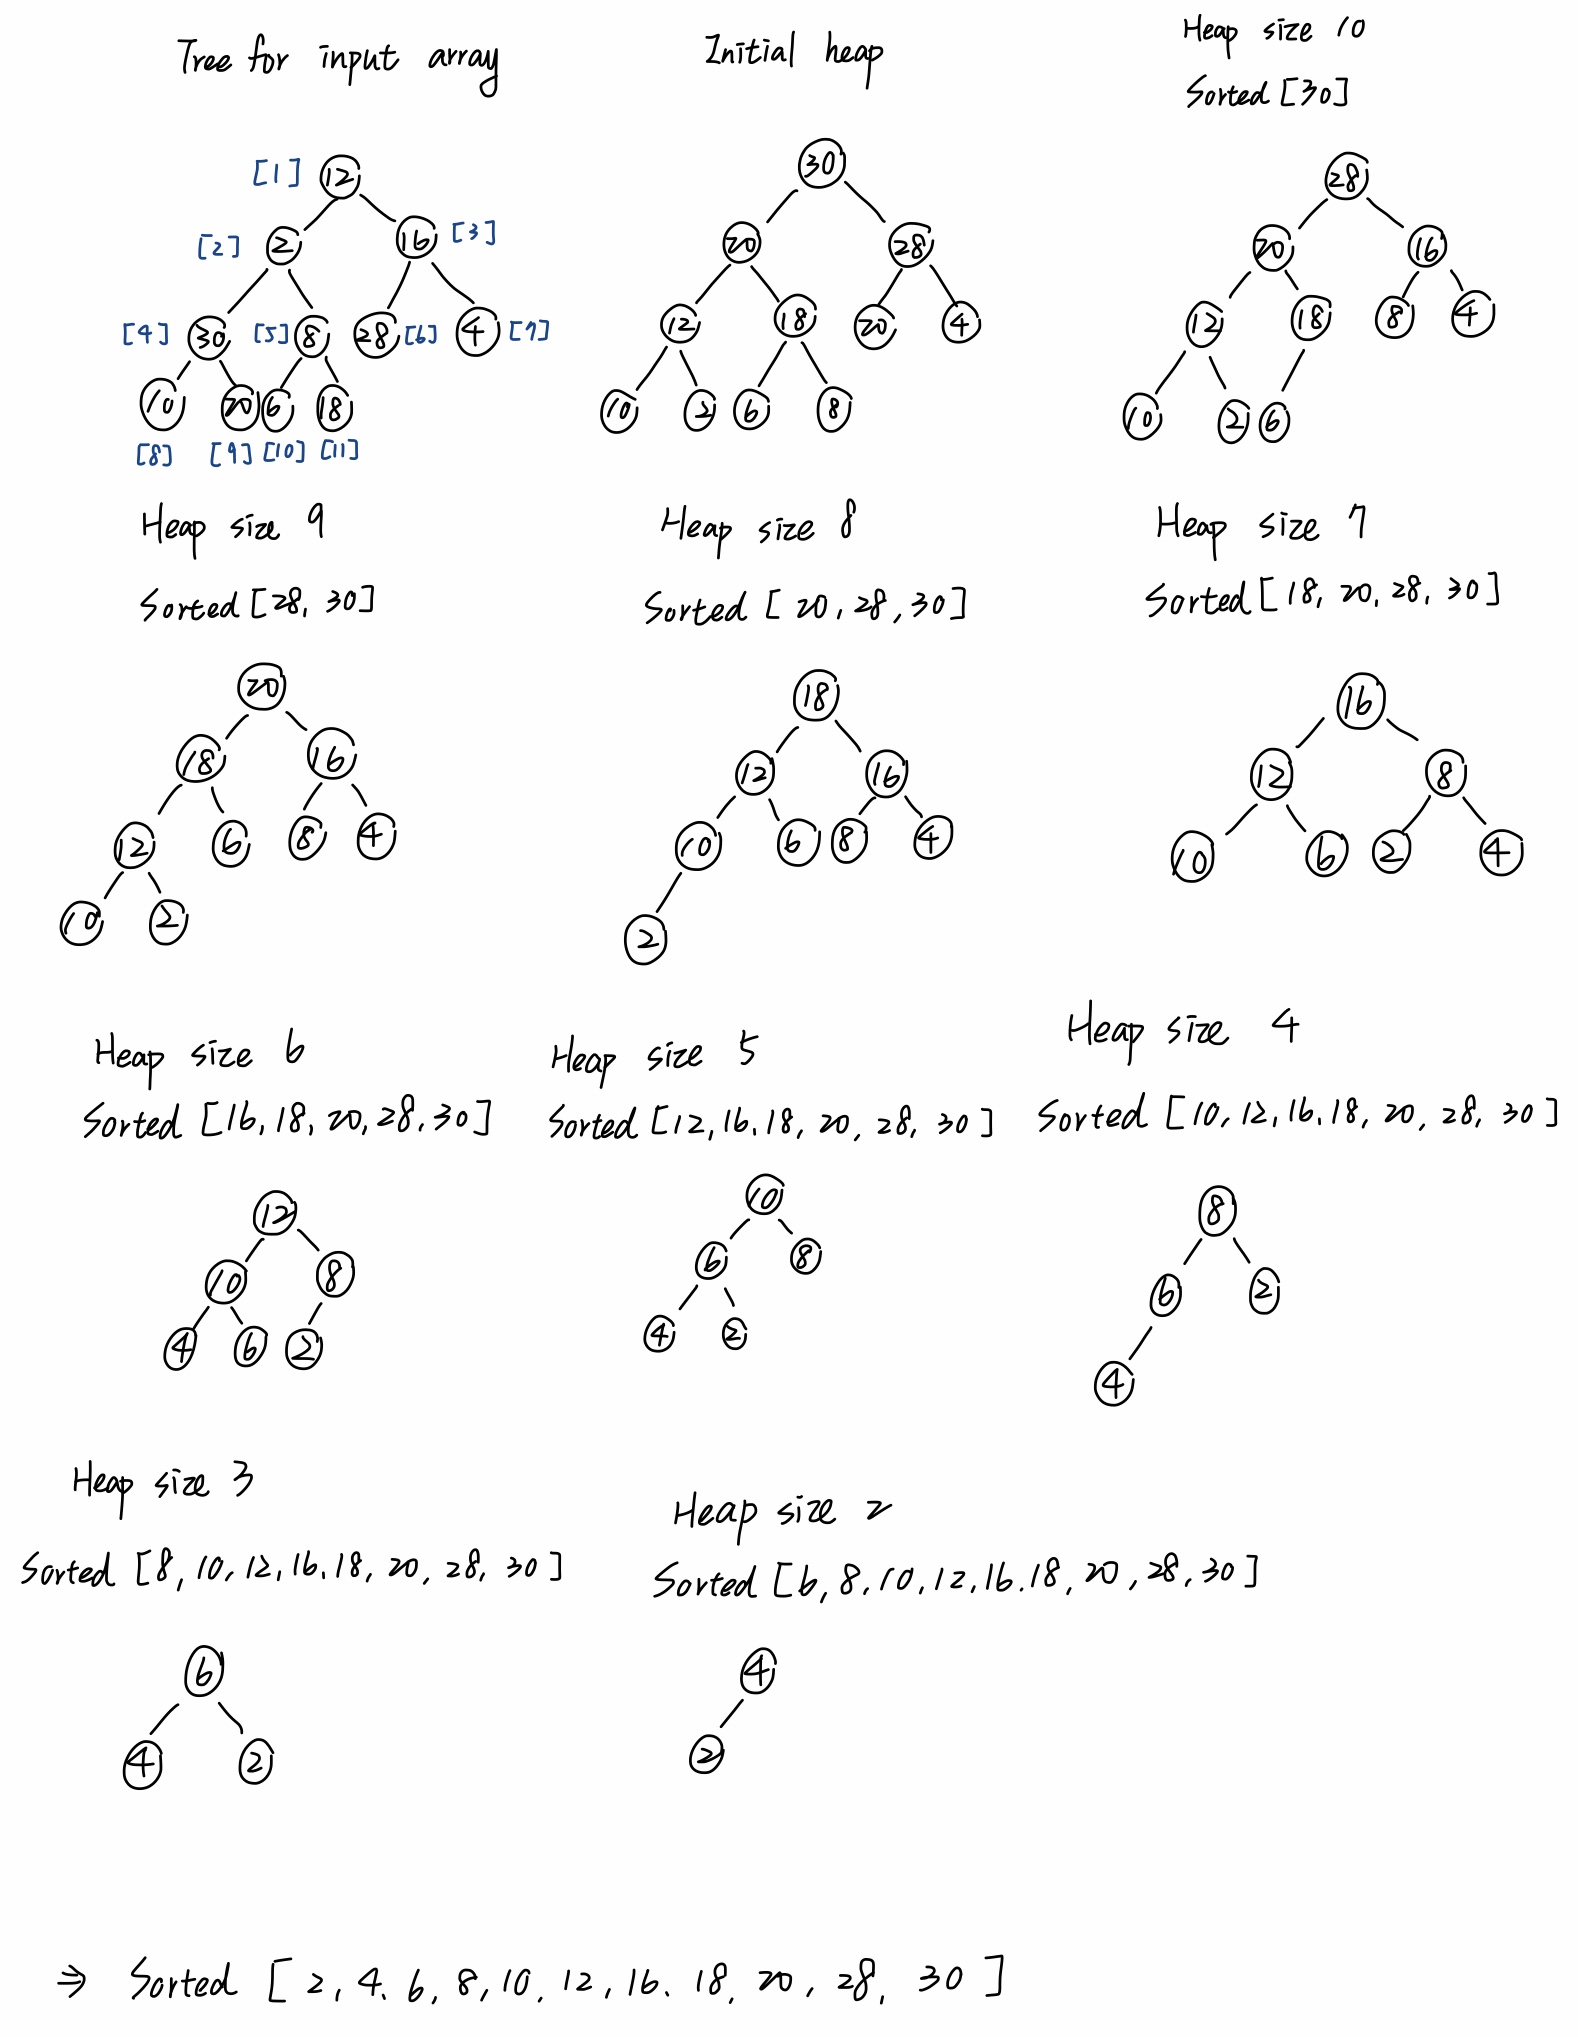 Tree for input array
[1] 12
[2] 2 16 [3]
[4] 30 [5] 8 28 [6] 4 [7]
10 20 6 18
[8] [9] [10] [11]
Initial heap
30
20 28
12 18 20 4
10 2 6 8
Heap size 10
Sorted [30]
28
20 16
12 18 8 4
10 2 6
Heap size 9
Sorted [28, 30]
20
18 16
12 6 8 4
10 2
Heap size 8
Sorted [20, 28, 30]
18
12 16
10 6 8 4
2
Heap size 7
Sorted [18, 20, 28, 30]
16
12 8
10 6 2 4
Heap size 6
Sorted [16, 18, 20, 28, 30]
12
10 8
4 6 2
Heap size 5
Sorted [12, 16, 18, 20, 28, 30]
10
6 8
4 2
Heap size 4
Sorted [10, 12, 16, 18, 20, 28, 30]
8
6 2
4
Heap size 3
Sorted [8, 10, 12, 16, 18, 20, 28, 30]
6
4 2
Heap size 2
Sorted [6, 8, 10, 12, 16, 18, 20, 28, 30]
4
2
⇒ Sorted [2, 4, 6, 8, 10, 12, 16, 18, 20, 28, 30]